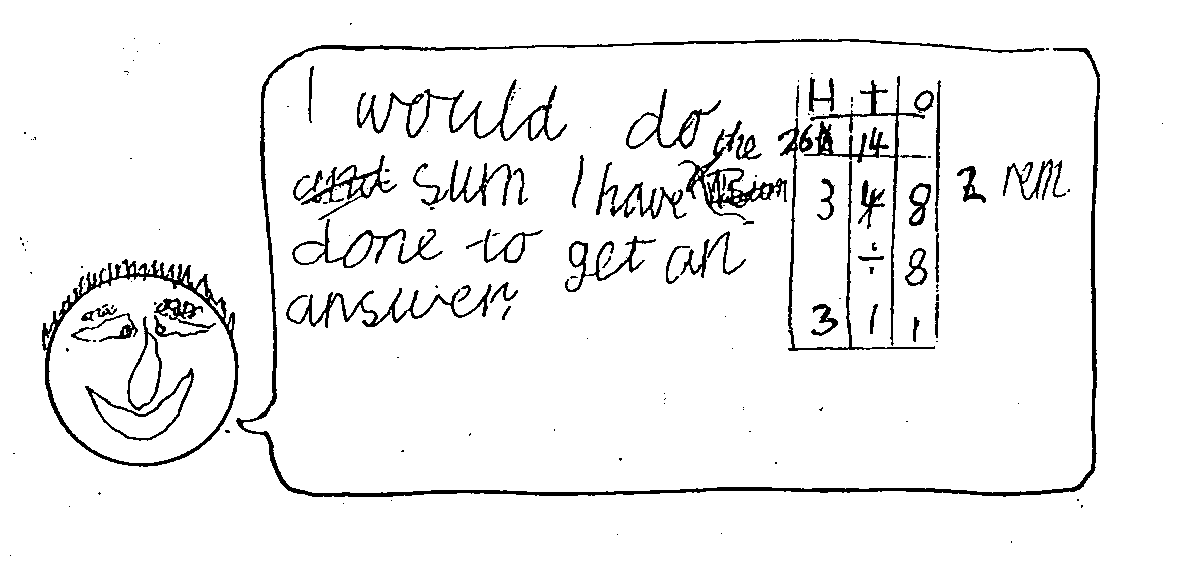 I would do the
sum I have
done to get an
answer.
H T O
14
3 4 8 2 rem
÷ 8
3 1 1